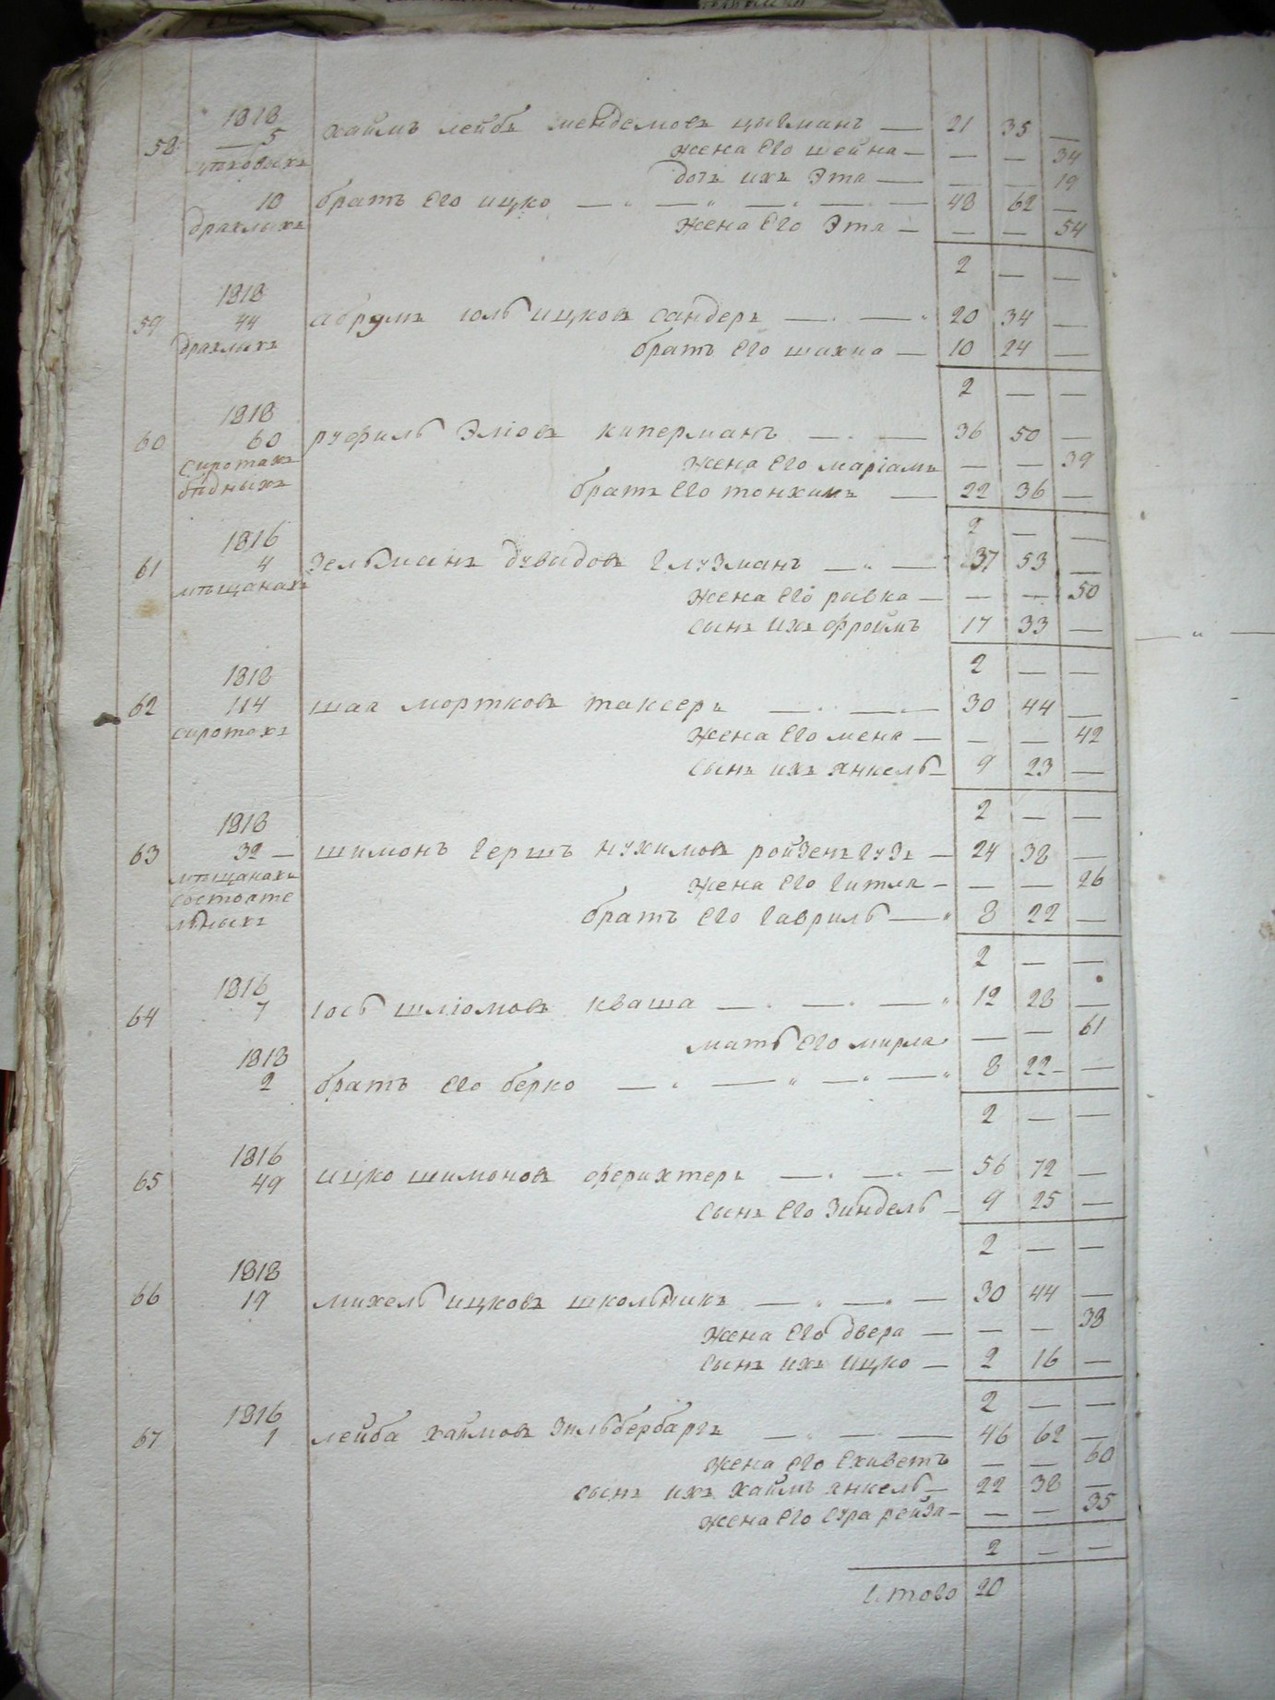 1818
58 5 хаимъ лейбъ мендемовъ цывманъ — 21 35 —
цеховыхъ жена его шейна — — — 34
дочъ ихъ Эта — — — 19
10 братъ его ицко — " — " — " — " — 48 62 —
драхлыхъ жена его Эта — — — 54
2 — —
1818
59 44 абрумъ юль ицковъ сандеръ — . — " 20 34 —
драхлыхъ братъ его шахно — 10 24 —
2 — —
1818
60 60 руфиль Эліовъ киперманъ — . — 36 50 —
сиротахъ жена его маріамъ — — 39
бѣдныхъ братъ его тонхимъ — 22 36 —
2 — —
1816
61 4 Зельманъ дувидовъ глузманъ — " — 37 53 —
мѣщанахъ жена его ривка — — — 50
сынъ ихъ фроимъ 17 33 —
2 — —
1818
62 114 шая мортковъ таксеръ — . — . — 30 44 —
сиротахъ жена его мена — — — 42
сынъ ихъ янкель — 9 23 —
2 — —
1818
63 32 — шимонъ гершъ нухимовъ ройзенгузъ — 24 38 —
мѣщанахъ жена его гитля — — — 26
состояте братъ его гавриль — " 8 22 —
льныхъ
2 — —
1816
64 7 іось шліомовъ кваша — . — . — " 12 28 —
мать его мирля — — 61
1818
2 братъ его берко — " — " — " — " 8 22 — —
2 — —
1816
65 49 ицко шимоновъ ферихтеръ — . — . — 56 72 —
сынъ его Зиндель — 9 25 —
2 — —
1818
66 19 михель ицковъ школьникъ — " — . — 30 44 —
жена его двера — — — 38
сынъ ихъ ицко — 2 16 —
2 — —
1816
67 1 лейба хаймовъ Зильбербаргъ — " — . — 46 62 —
жена его Ехиветъ — — 60
сынъ ихъ хаймъ янкель — 22 38 —
жена его сура рейза — — — 35
2 — —
Итого 20